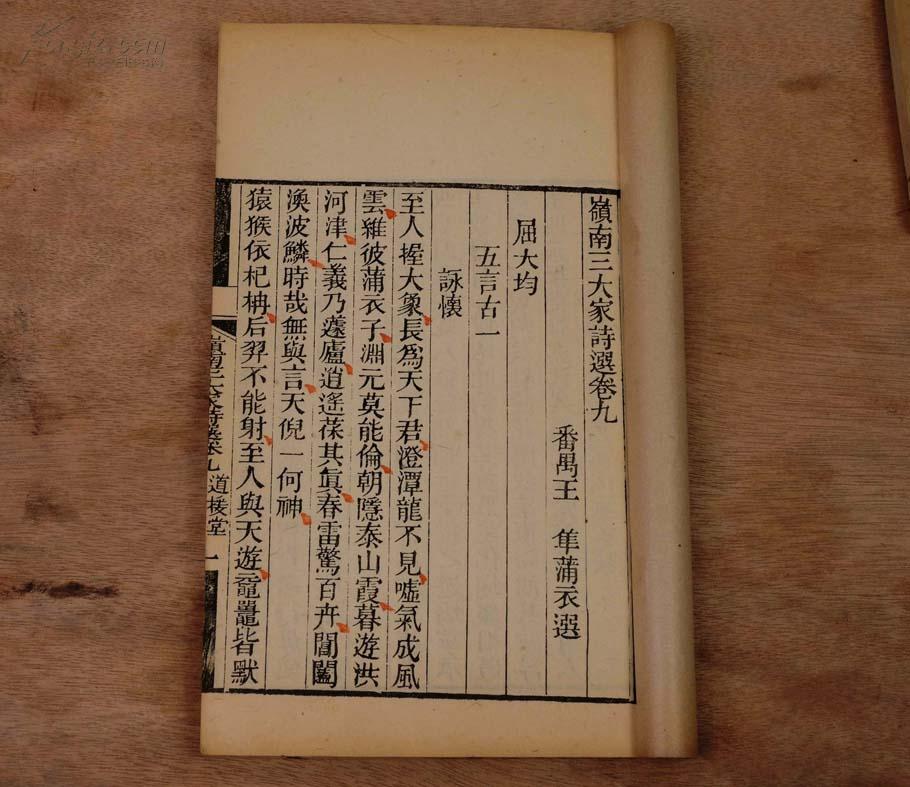 嶺南三大家詩選卷九
番禺王 隼蒲衣選
屈大均
五言古一
詠懷
至人握大象長爲天下君澄潭龍不見噓氣成風
雲雖彼蒲衣子淵元莫能倫朝隱泰山霞暮遊洪
河津仁義乃蘧廬逍遙葆其眞春雷驚百卉閶闔
渙波鱗時哉無與言天倪一何神
猿猴依杞枬后羿不能射至人與天遊靇鼉皆默
嶺南三大家詩選卷九 道棲堂 一